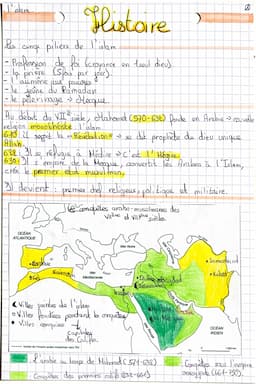 L'islam
Histoire
Les cinq piliers de l'islam
- Profession de foi (croyance en 1 seul dieu)
- la prière (5 fois par jour)
- l'aumône aux pauvres
- le jeûne du Ramadan
- le pèlerinage → Mecque
Au début du VIIe siècle, Mahomet (570-632) fonde en Arabie
religion monothéiste l'islam
610: Il reçoit la "Révélation" → se dit prophète du dieu unique
Allah.
622: Il se réfugie à Médine → c'est l'Hégire
630: Il s'empare de la Mecque, convertit les Arabes à l'Islam,
crée le premier état musulman.
Il devient : premier chef religieux, politique et militaire.
Conquêtes arabo-musulmanes des
VIIe et VIIIe siècles
OCÉAN
ATLANTIQUE
Mer Noire
Mer Méditerranée
Cordoue
Samarcande
Kaboul
Damas
Bagdad
Fès
OCÉAN
INDIEN
Villes saintes de l'islam
Villes fondées pendant la conquête
Villes conquises
Capitales
des Califes
L'Arabie au temps de Mahomet (571-632)
Conquêtes des premiers califes (632-661)
Conquêtes sous l'empire
omeyyade (661-750).